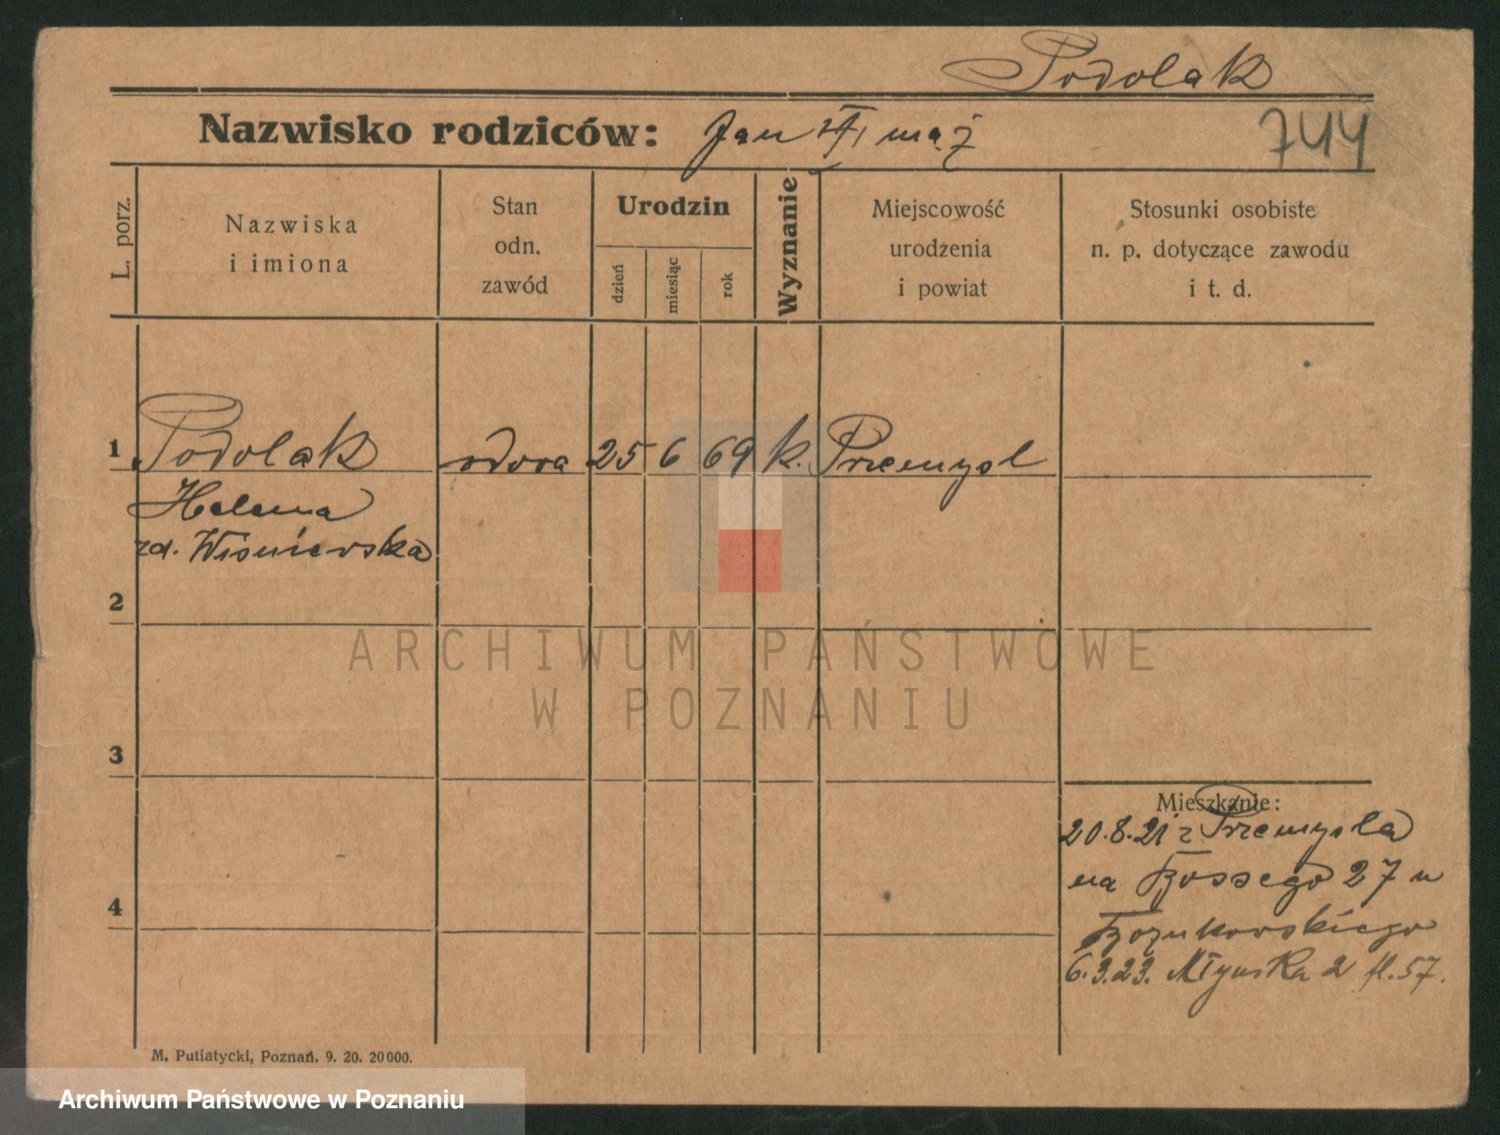 Podolak
Nazwisko rodziców: Jan mąż
744
L. porz.
Nazwiska
i imiona
Stan
odn.
zawód
Urodzin
dzień
miesiąc
rok
Wyznanie
Miejscowość
urodzenia
i powiat
Stosunki osobiste
n. p. dotyczące zawodu
i t. d.
1 Podolak wdowa 25 6 69 k. Przemysl
Helena
zd. Wisniewska
2
3
4
Mieszkanie:
20.8.21 z Przemysla
na 27 u
6.3.23. Młynska 2 fl. 57.
M. Putiatycki, Poznań. 9. 20. 20000.
ARCHIWUM PAŃSTWOWE
W POZNANIU
Archiwum Państwowe w Poznaniu